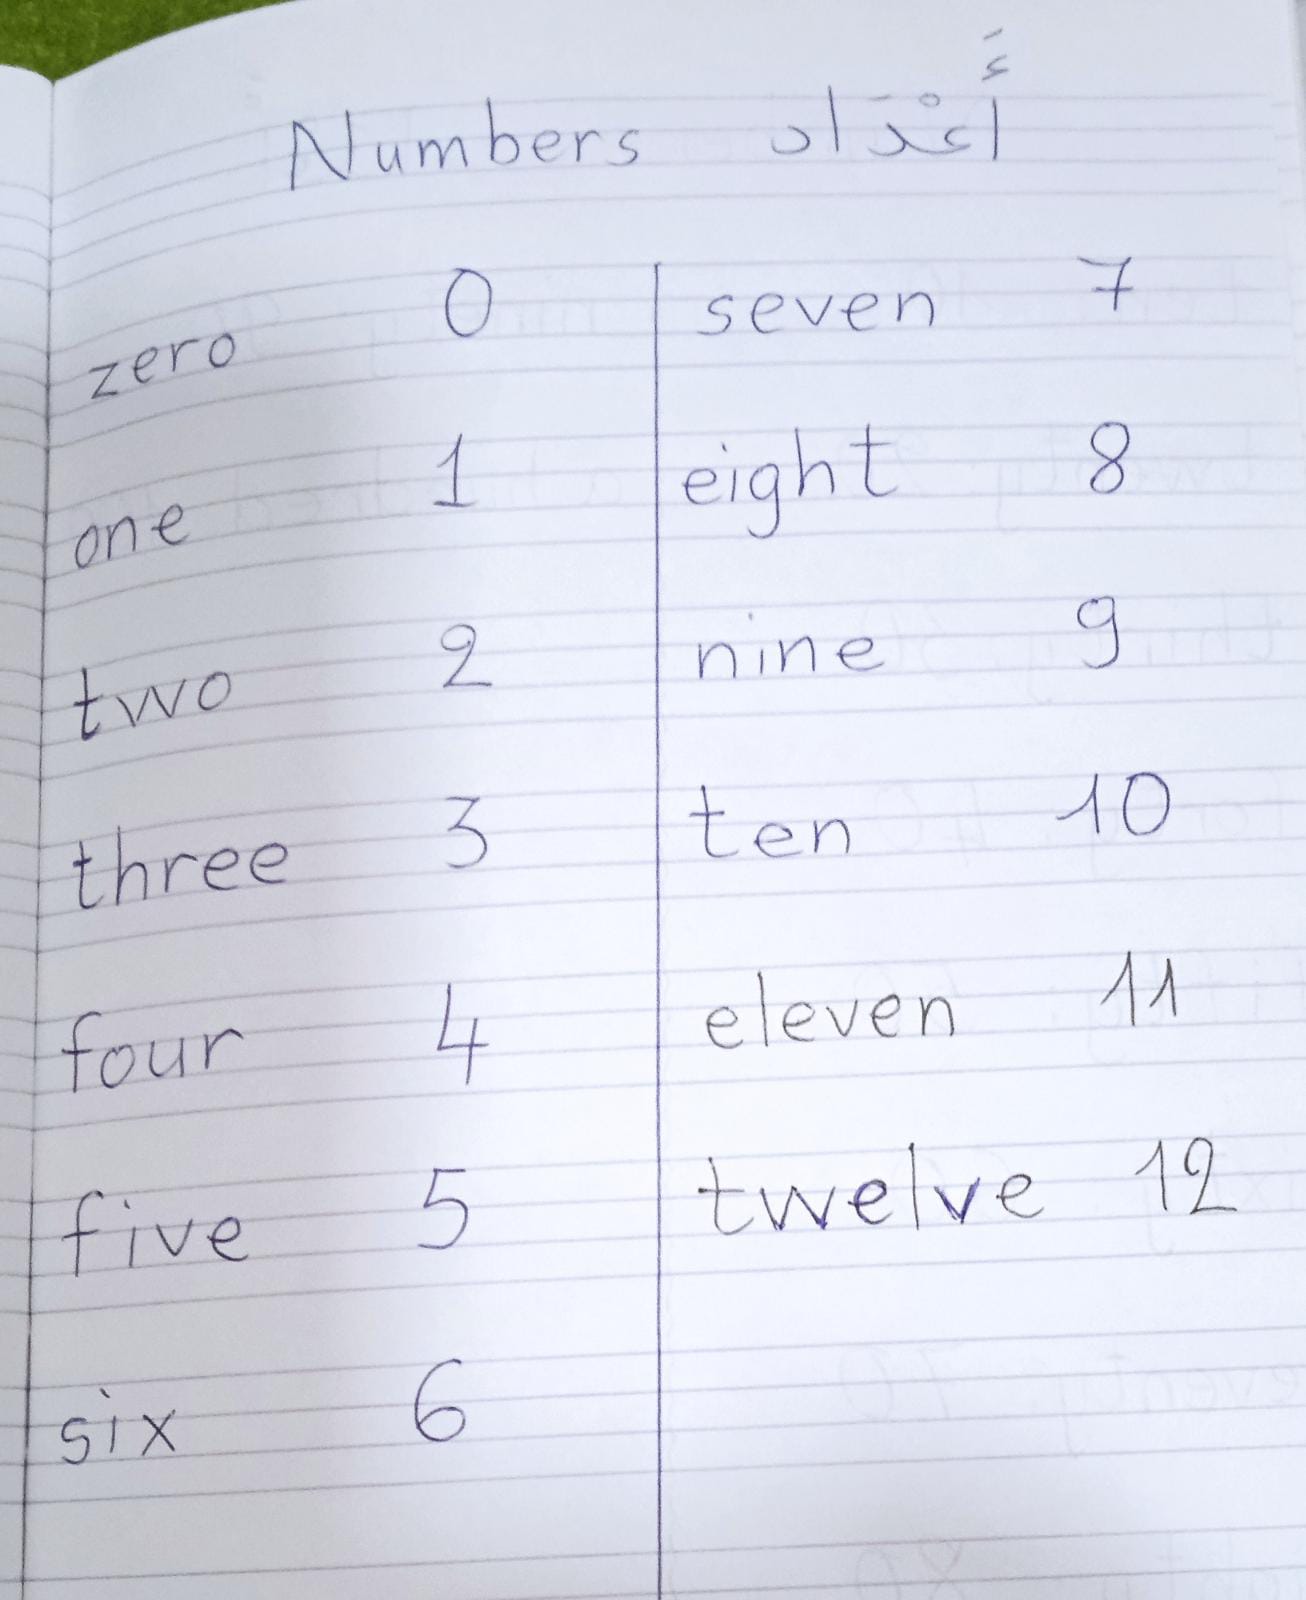 Numbers أَعْدَاد
zero 0
one 1
two 2
three 3
four 4
five 5
six 6
seven 7
eight 8
nine 9
ten 10
eleven 11
twelve 12